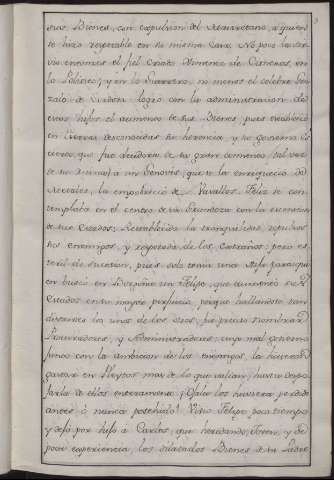 sus Bienes, con expulsion del Mauritano, a quien
se hizo respetable en su misma Casa. No poco la sirvio
entonces el fiel Criado Ximenez de Cisneros, en
lo Politico, y en lo Guerrero, ni menos el celebre Gon-
zalo de Cordova logro con la administracion de
evos hijos el aumento de sus Bienes, pues establecio
en tierras desconocidas su herencia, y su govierno. Es
cierto, que fue deudora de su gran aumento, (tal vez
de su ruina) a un Genoves, que si la enriquecio de
Metales, la empobrecio de Vasallos. Feliz se con-
templaba en el centro de su Grandeza con la extension
de sus Estados, Restablecida la tranquilidad, repulsos
los enemigos, y respetada de los Extraños; pero es-
teril de sucesion, pues solo tenia una hija para que
en busca un Felipe, que aumentò sus
Estados en su mayor perjuicio, porque hallandose tan
distantes los unos de los otros, fue preciso nombrar
Procuradores, y Administradores, cuyo mal govierno
junto con la ambicion de los enemigos, la hicieron
gastar en Pleytos mas de lo que valian, hasta despo-
jarla a ellos enteramente; ¡Ojala los huviera perdido
antes ò nunca posehido! Vivio Felipe poco tiempo
y dejó por hijo a Carlos, que heredando, Joven, y de
poca experiencia, los dilatados Bienes de su Padre